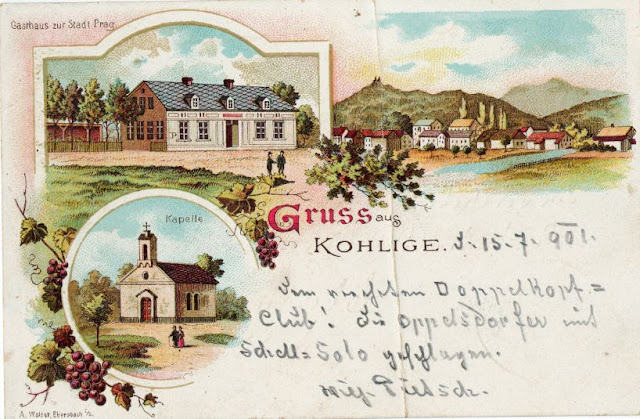 Gasthaus zur Stadt Prag
Kapelle
Gruss aus
KOHLIGE. d. 15.7.901.
Doppelkopf=
Club! Die Oppelsdorfer mit
Schell=Solo geschlagen.
Pietsch.
Ebersbach i/S.